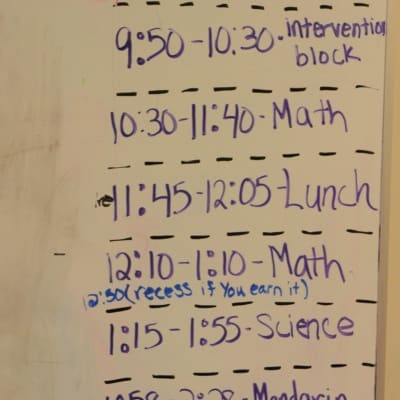 9:50-10:30-intervention
block
10:30-11:40-Math
11:45-12:05-Lunch
12:10-1:10-Math
12:50(recess if You earn it)
1:15-1:55-Science
Mandarin